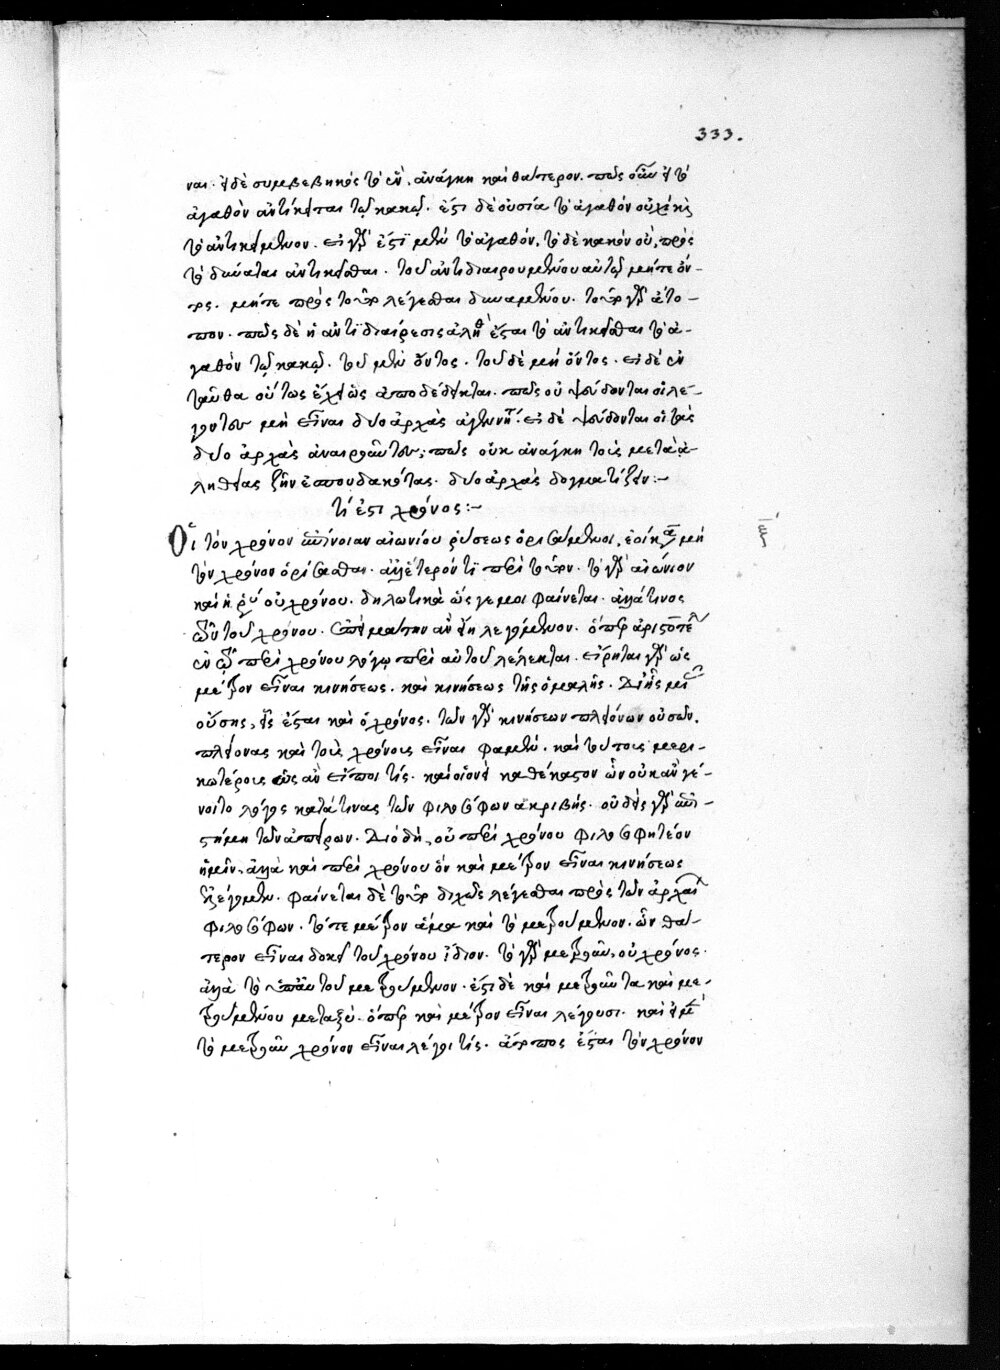 333.
ναι. εἰ δὲ συμβεβηκὸς τὸ ἓν, ἀνάγκη καὶ θάτερον. πῶς οὖν εἰ τὸ
ἀγαθὸν ἀντίκειται τῷ κακῷ. ἔστι δὲ οὐσία τὸ ἀγαθὸν οὐχὶ καὶ
τὸ ἀντικείμενον. εἰ γὰρ ἔστι μὲν τὸ ἀγαθὸν, τὸ δὲ κακὸν οὔ, πρὸς
τὸ δύναται ἀντικεῖσθαι. τοῦ ἀντιδιαιρουμένου αὐτῷ μήτε ὄν-
τος. μήτε πρὸς τοῦτο λέγεσθαι δυναμένου. τοῦτο γὰρ ἄτο-
πον. πῶς δὲ ἡ ἀντιδιαίρεσις ἀληθὴς ἔσται τὸ ἀντικεῖσθαι τὸ ἀ-
γαθὸν τῷ κακῷ. τοῦ μὲν ὄντος. τοῦ δὲ μὴ ὄντος. εἰ δὲ ἐν
ταῦθα οὕτως ἔχειν ὡς ἀποδέδεικται. πῶς οὐ ψεύδονται οἱ λέ-
γοντες μὴ εἶναι δύο ἀρχὰς ἀγεννήτους. εἰ δὲ ψεύδονται οἱ τὰς
δύο ἀρχὰς ἀναιροῦντες, πῶς οὐκ ἀνάγκη τοῖς μετὰ ἀ-
ληθείας ζῆν ἐσπουδακότας. δύο ἀρχὰς δογματίζειν:-
τί ἐστι χρόνος:-
Οἱ τὸν χρόνον ἐπίνοιαν αἰωνίου ῥύσεως ὁρισάμενοι, ἐοίκασι μὴ
τὸν χρόνον ὁρίσασθαι. ἀλλ' ἕτερόν τι περὶ τοῦτον. τὸ γὰρ αἰώνιον
καὶ ἡ ῥύσις οὐ χρόνου. δηλωτικὰ ὥς γέ μοι φαίνεται. ἀλλά τινος
τοῦ χρόνου. μάτην ἂν εἴη λεγόμενον. ὅπερ ἀριστοτέλει
ἐν τῷ περὶ χρόνου λόγῳ περὶ αὐτοῦ λέλεκται. εἴρηται γὰρ ὡς
μέτρον εἶναι κινήσεως. καὶ κινήσεως τῆς ὁμαλῆς. μιᾶς
οὔσης, εἷς ἔσται καὶ ὁ χρόνος. τῶν γὰρ κινήσεων πλειόνων οὐσῶν,
πλείονας καὶ τοὺς χρόνους εἶναι φαμὲν. καὶ τούτοις μερι-
κωτέροις ὡς ἂν εἴποι τίς. καὶ οἱονεὶ καθέκαστον ὧν οὐκ ἂν γέ-
νοιτο λόγος κατά τινας τῶν φιλοσόφων ἀκριβής. οὐδεὶς γὰρ ἐπι-
στήμη τῶν ἀπείρων. Διὸ δὴ, οὐ περὶ χρόνου φιλοσοφητέον
ἡμῖν, ἀλλὰ καὶ περὶ χρόνου ὃν καὶ μέτρον εἶναι κινήσεως
ἐλέγομεν. φαίνεται δὲ τοῦτο διχῶς λέγεσθαι πρὸς τῶν ἀρχαίων
φιλοσόφων. τό τε μέτρον ἅμα καὶ τὸ μετρούμενον. ὧν θά-
τερον εἶναι δοκεῖ τοῦ χρόνου ἴδιον. τὸ γὰρ μετροῦν, οὐ χρόνος.
ἀλλὰ τὸ ὑπὸ τοῦ μετρούμενον. ἔστι δὲ καὶ μετροῦντα καὶ με-
τρουμένου μεταξὺ. ὅπερ καὶ μέτρον εἶναι λέγουσι. καὶ εἰ μὲν
τὸ μετροῦν χρόνον εἶναι λέγοι τίς. ἄτοπος ἔσται τὸν χρόνον